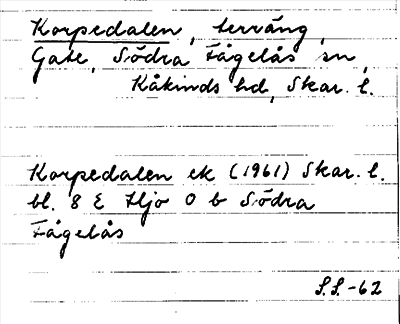 Korpedalen, terräng,
Gate, Södra Fågelås sn,
Kåkinds hd, Skar. l.
Korpedalen ek (1961) Skar. l.
bl. 8 E Hjo O b Södra
Fågelås
S.S.-62